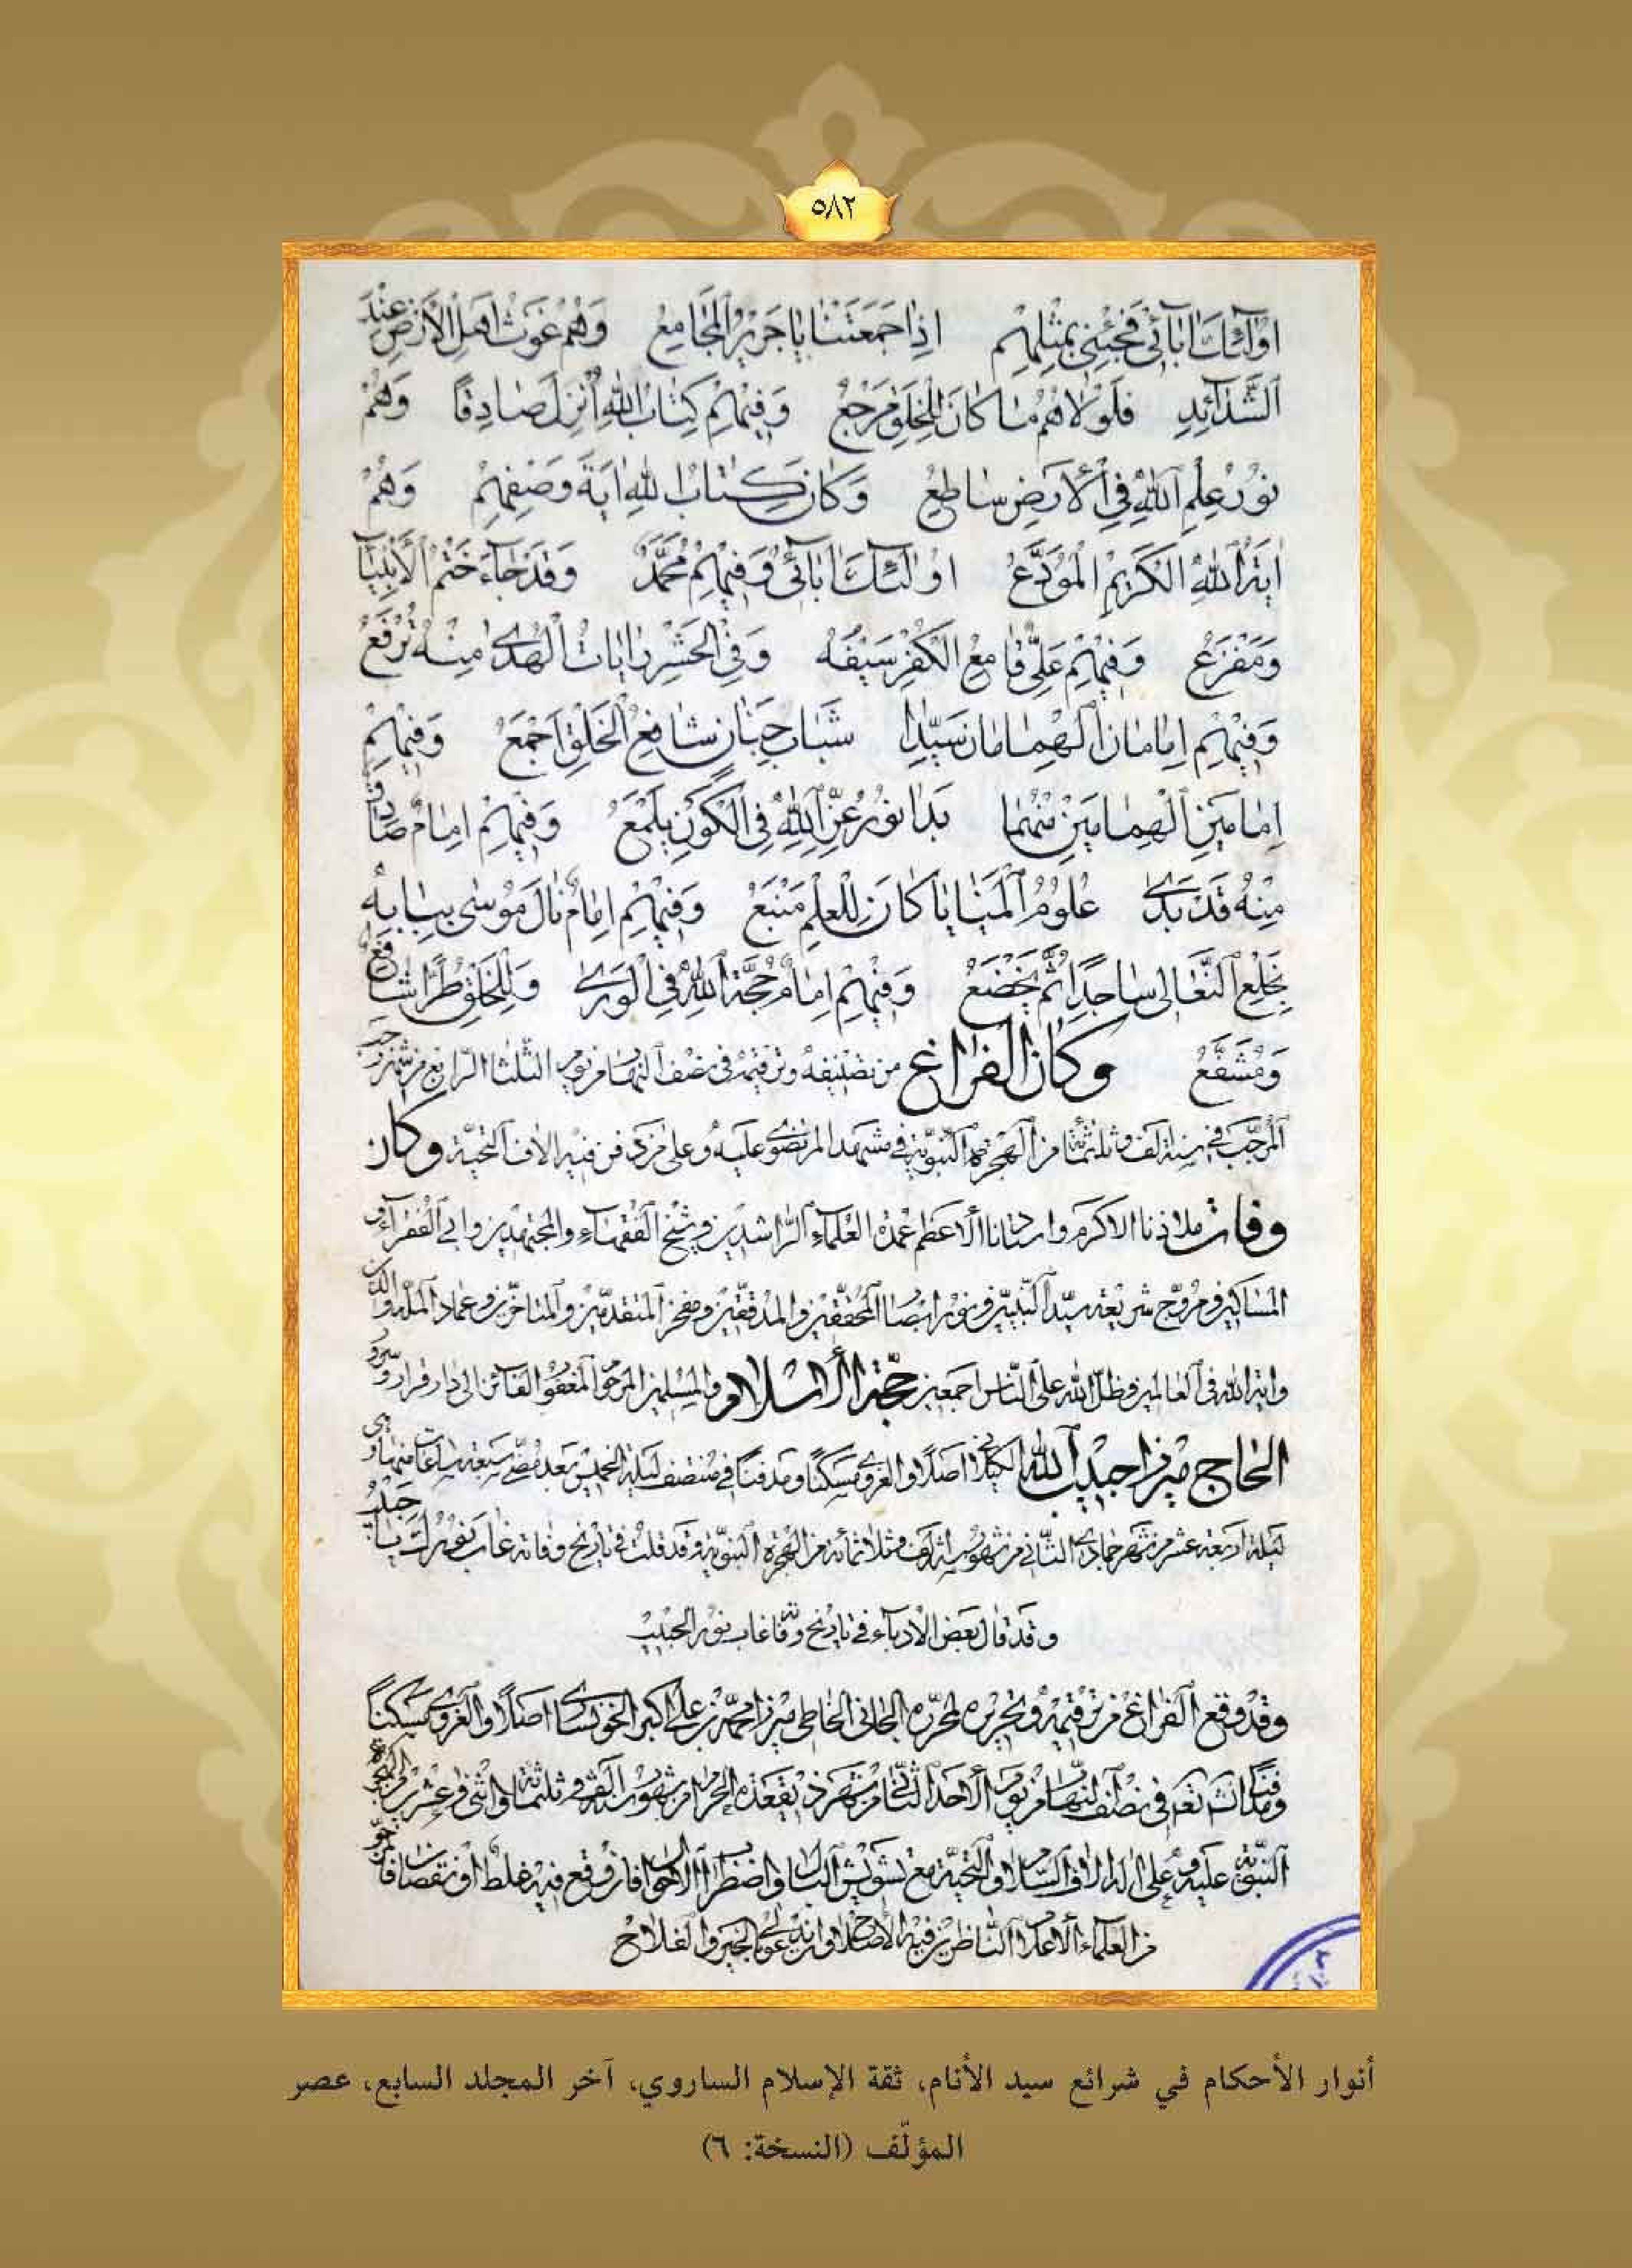 ٥٨٢
اولٰئك اٰبائي فجئني بمثلهم اذا جمعتنا يا جرير المجامع وهم غوث اهل الارض عند
الشدائد فلولاهم ما كان للخلق مرجع وفيهم كتاب الله انزل صادقا وهم
نور علم الله في الارض ساطع وكان كتاب الله اية وصفهم وهم
اية الله الكريم المودع اولٰئك اٰبائي وفيهم محمد وقد جاء ختم الانبياء
ومفزع وفيهم علي قامع الكفر سيفه وفي الحشر رايات الهدى منه ترفع
وفيهم امامان الهمامان سيدا شباب جنان شافع الخلق اجمع وفيهم
امامين الهمامين منهما بدا نور عز الله في الكون يلمع وفيهم امام صادق
منه قد بدى علوم المنايا كان للعلم منبع وفيهم امام نال موسى ببابه
بخلع النعال ساجدا ثم يخضع وفيهم امام حجة الله في الورى وللخلق طرا شافع
ومشفع وكان الفراغ من تصنيفه وترقيمه في نصف النهار من يوم الثلثا الرابع من شهر رجب
المرجب في سنة الف وثلثمائة من الهجرة النبوية في مشهد المرتضوي عليه وعلى من دفن فيه الاف التحية وكان
وفات ملاذنا الاكرم واستادنا الاعظم عمدة العلماء الراشدين وشيخ الفقهاء والمجتهدين وابي الفقراء و
المساكين ومروج شريعة سيد النبيين ونور ابصار المحققين والمدققين ومفخر المتقدمين والمتاخرين وعماد الملة والدين
واية الله في العالمين وظل الله على الناس اجمعين حجة الاسلام والمسلمين المرحوم المغفور الفائز الى دار قرار وسرور
الحاج ميرزا حبيب الله الكيلاني اصلا والغروي مسكنا ومدفنا في منتصف ليلة الخميس بعد مضي سبعة ساعات منها وهي
ليلة اربعة عشر من شهر جمادى الثاني من شهور سنة الف وثلاثمائة من الهجرة النبوية وقد قلت في تاريخ وفاته غاب نور
وقد قال بعض الادباء في تاريخ وفاته غاب نور الحبيب
وقد وقع الفراغ من ترقيمه وتحريره لمحرره الجاني الخاطي ميرزا محمد بن علي اكبر الخونساري اصلا والغروي مسكنا
ومدفنا انشاء الله تعالى في نصف النهار من يوم الاحد الثاني من شهر ذيقعدة الحرام من شهور سنة الف وثلثمائة واثنى وعشرين من الهجرة
النبوية عليه وعلى اله الاف السلام والتحية مع تشويش البال واضطراب الاحوال فان وقع فيه غلط او نقصان فالمرجو
من العلماء الاعلام الناظرين فيه الاصلاح وان يدعوا لي بالخير والفلاح
أنوار الأحكام في شرائع سيد الأنام، ثقة الإسلام الساروي، آخر المجلد السابع، عصر
المؤلّف (النسخة: ٦)